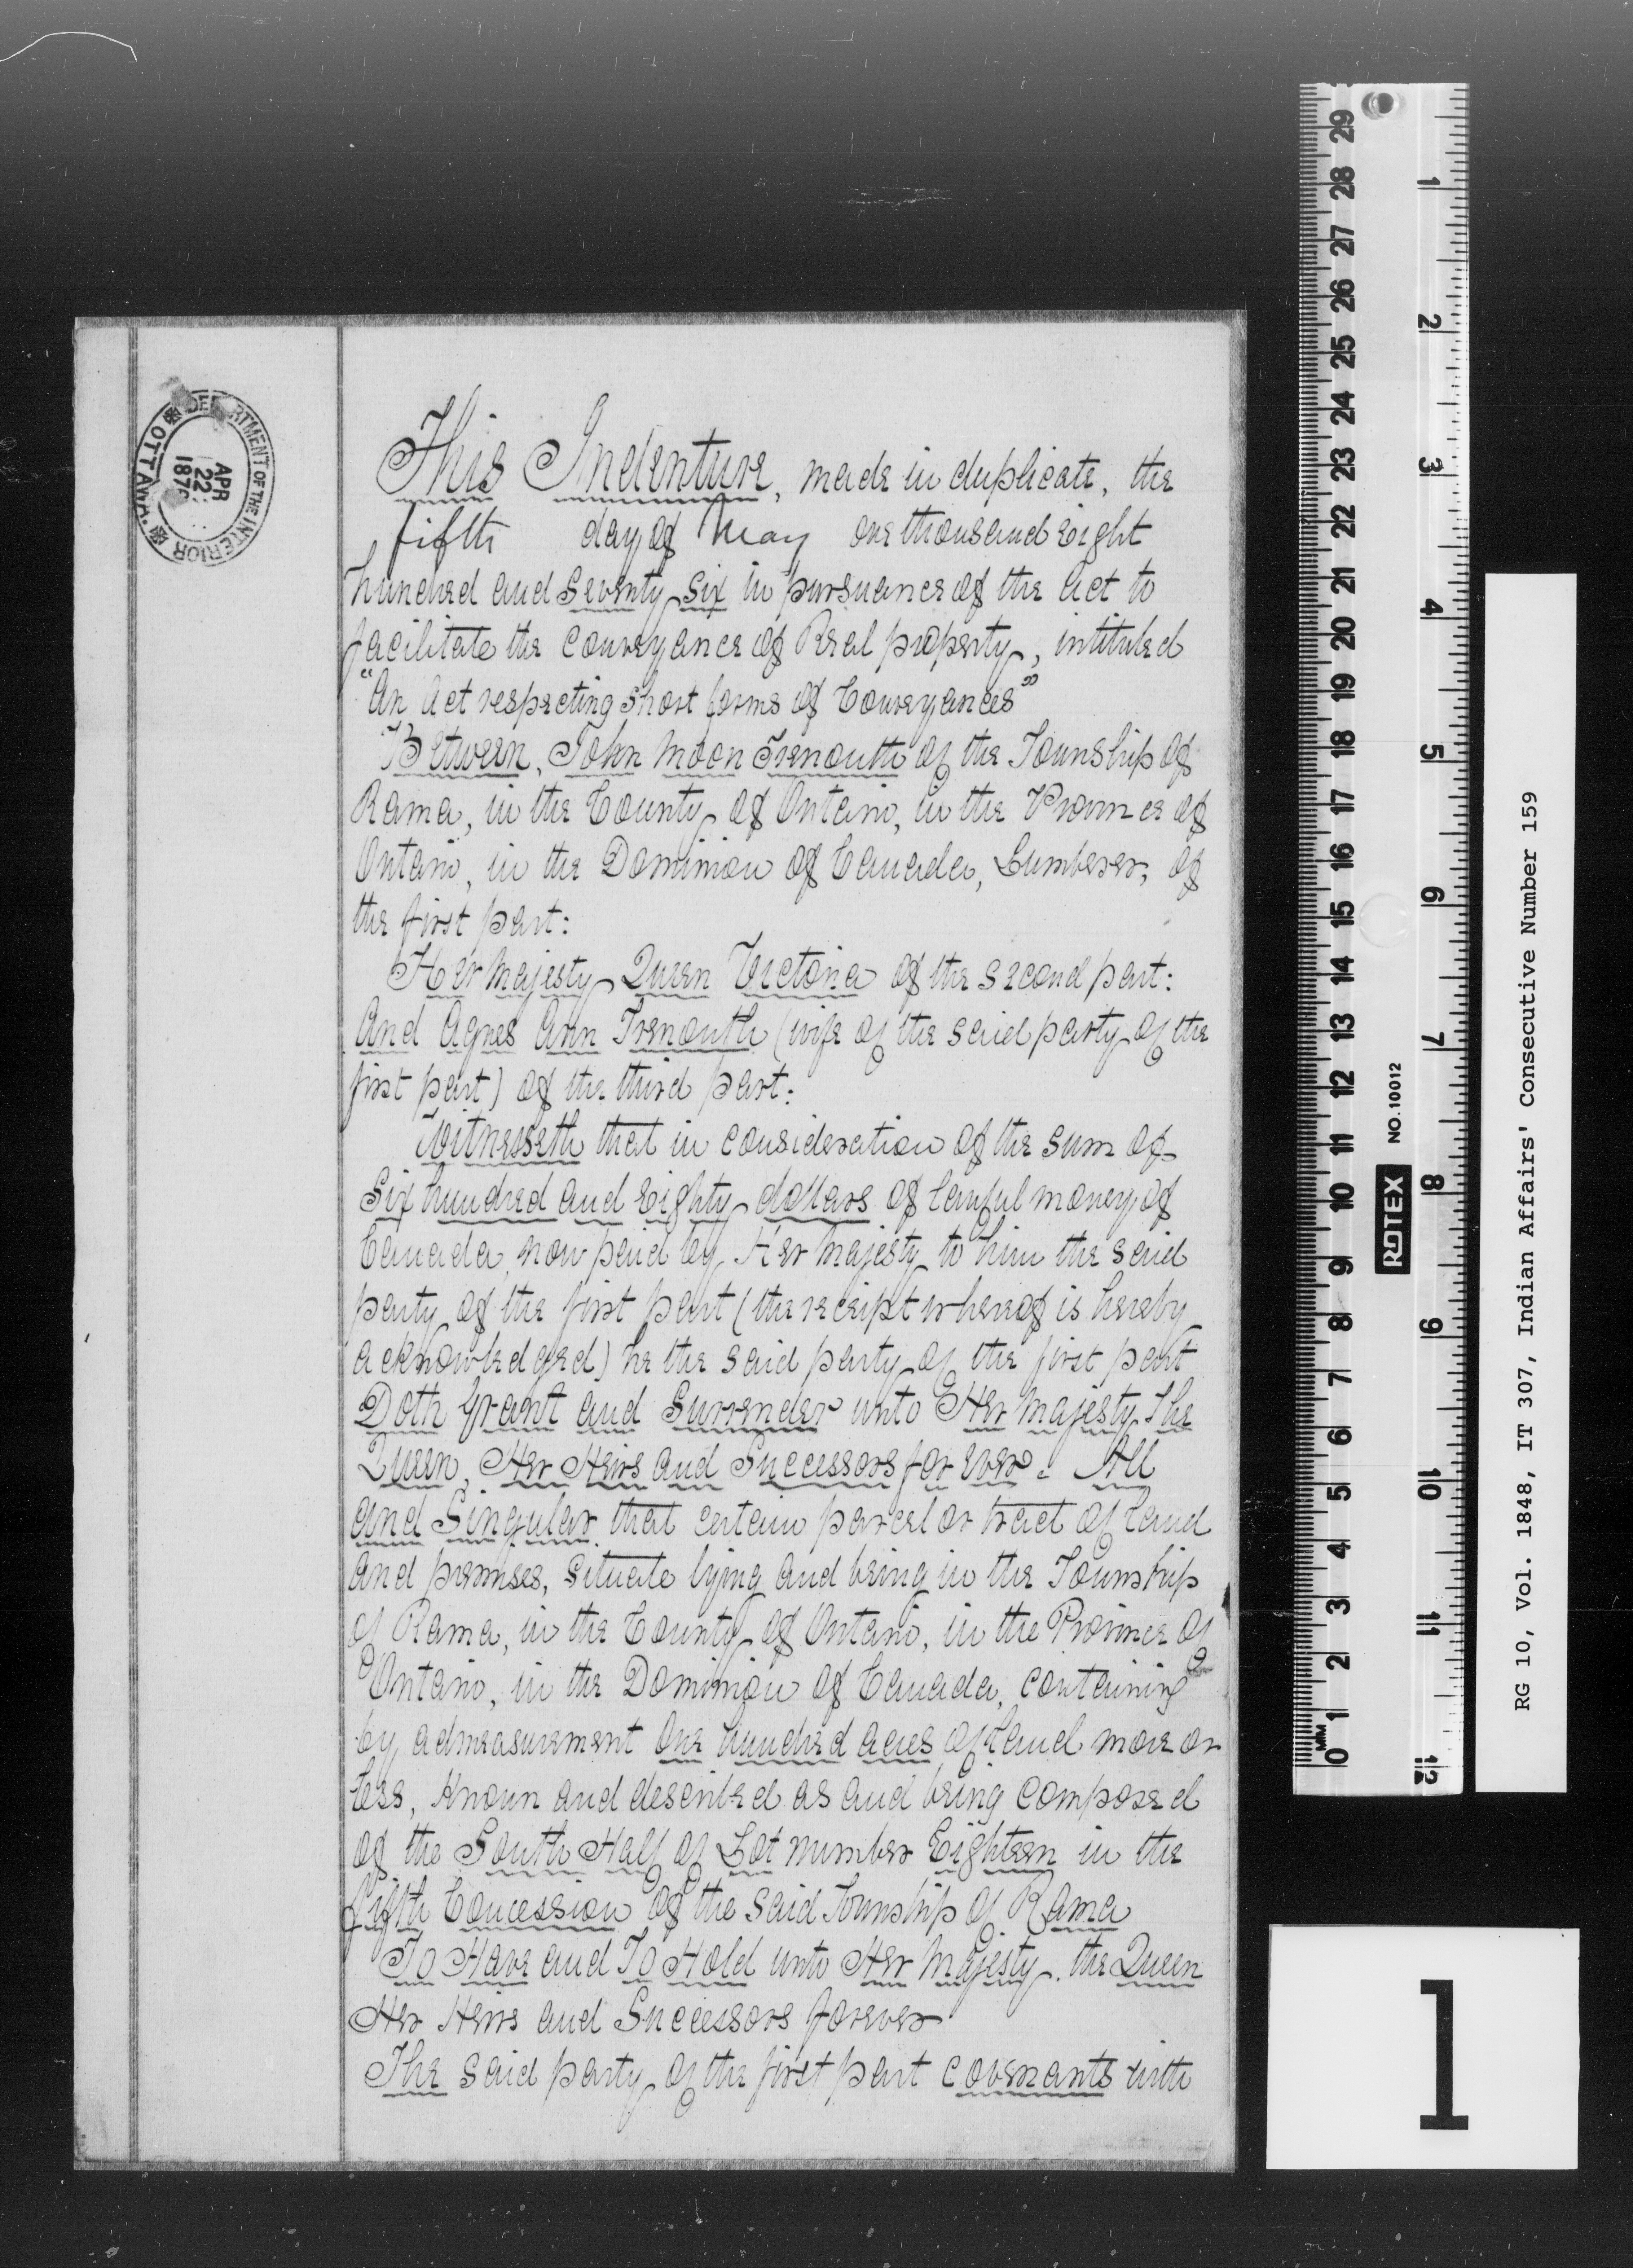 This Indenture, made in duplicate, the
fifth day of May one thousand eight
hundred and Seventy Six in pursuance of the Act to
facilitate the Conveyance of Real property, intituled
"An Act respecting short forms of Conveyances"
Between, John Moon Tremouth of the Township of
Rama, in the County of Ontario, in the Province of
Ontario, in the Dominion of Canada, Lumberer, of
the first part:
Her Majesty Queen Victoria of the second part:
And Agnes Ann Tremouth (wife of the said party of the
first part) of the third part:
Witnesseth that in consideration of the sum of
Six hundred and Eighty dollars of lawful money of
Canada, now paid by Her Majesty to him the said
party of the first part (the receipt whereof is hereby
acknowledged) he the said party of the first part
Doth Grant and Surrender unto Her Majesty The
Queen, Her Heirs and Successors for ever. All
and Singular that certain parcel or tract of land
and premises, situate lying and being in the Township
of Rama, in the County of Ontario, in the Province of
Ontario, in the Dominion of Canada, containing
by admeasurement One hundred acres of land more or
less, Known and described as and being composed
of the South Half of Lot number Eighteen in the
fifth Concession of the said Township of Rama
To Have and To Hold unto Her Majesty the Queen
Her Heirs and Successors forever
The said party of the first part covenants with
DEPARTMENT OF THE INTERIOR
APR
22
OTTAWA
RG 10, Vol. 1848, IT 307, Indian Affairs' Consecutive Number 159
ROTEX NO.10012
MM
0 1 2 3 4 5 6 7 8 9 10 11 12 13 14 15 16 17 18 19 20 21 22 23 24 25 26 27 28 29
1 2 3 4 5 6 7 8 9 10 11 12
1